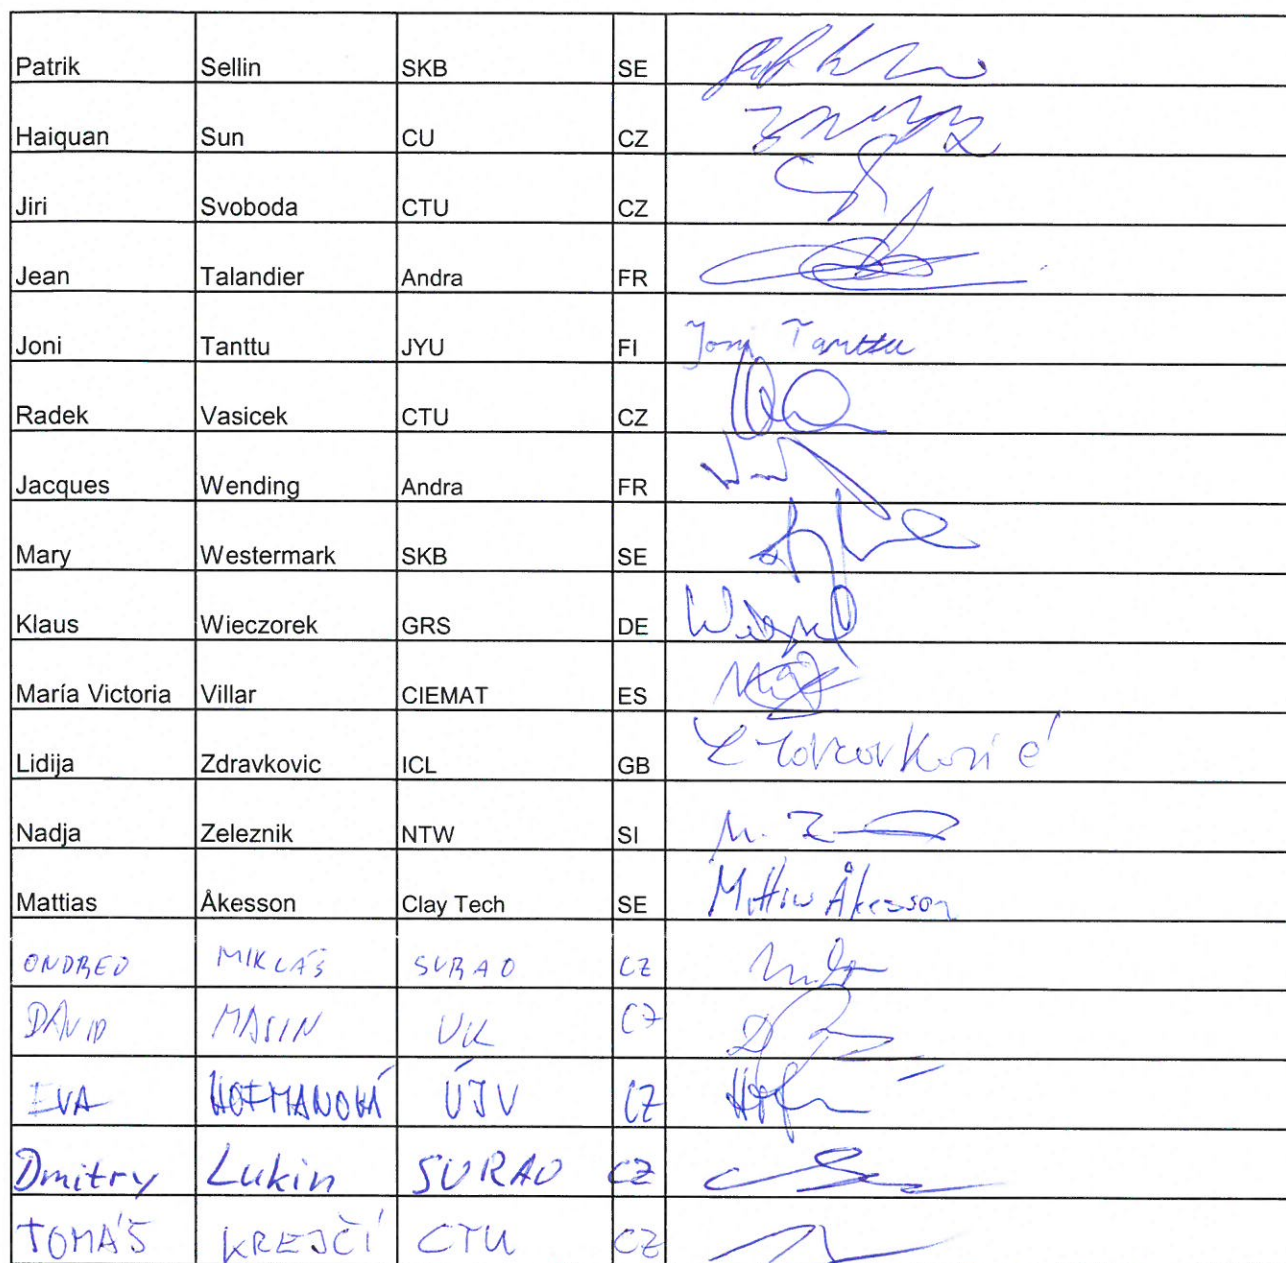 Patrik Sellin SKB SE
Haiquan Sun CU CZ
Jiri Svoboda CTU CZ
Jean Talandier Andra FR
Joni Tanttu JYU FI Joni Tanttu
Radek Vasicek CTU CZ
Jacques Wending Andra FR
Mary Westermark SKB SE
Klaus Wieczorek GRS DE
María Victoria Villar CIEMAT ES
Lidija Zdravkovic ICL GB
Nadja Zeleznik NTW SI
Mattias Åkesson Clay Tech SE Mattias Åkesson
ONDREJ MIKLÁŠ SURAO CZ
DAVID MASIN UK CZ
EVA HOFMANOVÁ ÚJV CZ
Dmitry Lukin SURAO CZ
TOMÁŠ KREJČÍ CTU CZ